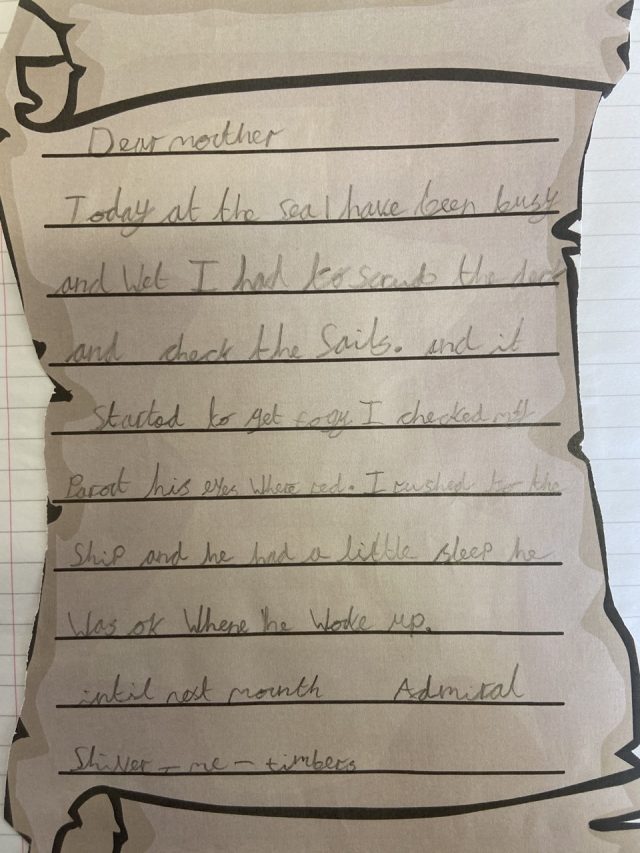 Dear mother
Today at the sea I have been busy
and Wet I had to scrub the deck
and check the Sails. and it
Started to get fogy I checked my
Parot his eyes Where red. I rushed to the
Ship and he had a little sleep he
Was ok Where he Woke up.
intil next mounth Admiral
Shiver-me-timbers